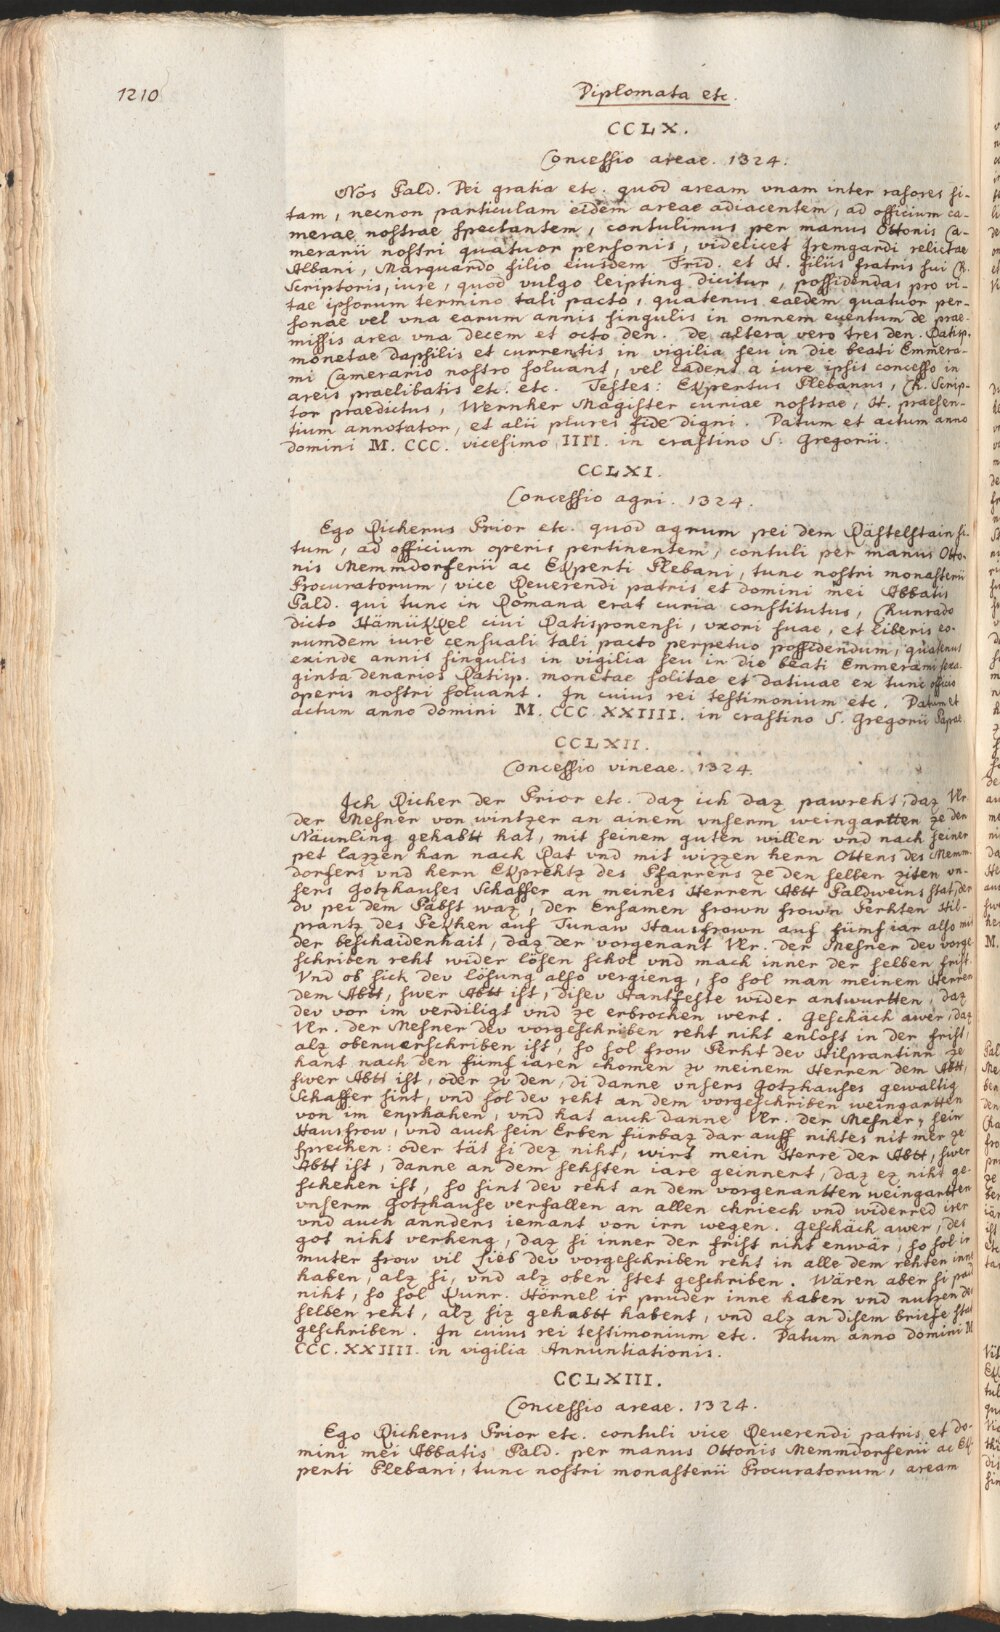 1210
Diplomata etc.
CCLX.
Concessio areae. 1324.
Nos Bald. Dei gratia etc. quod aream vnam inter rasores si-
tam, necnon particulam eidem areae adiacentem, ad officium ca-
merae nostrae spectantem, contulimus per manus Ottonis Ca-
merarii nostri quatuor personis, videlicet Iremgardi relictae
Albani, Marquardo filio eiusdem Frid. et H. filiis fratris sui Ch.
Scriptoris, iure, quod vulgo leipting dicitur, possidendas pro vi-
tae ipsorum termino tali pacto, quatenus eaedem quatuor per-
sonae vel vna earum annis singulis in omnem euentum de prae-
missis area vna decem et octo den. de altera vero tres den. Ratisp.
monetae dapsilis et currentis in vigilia seu in die beati Emmera-
mi Camerario nostro soluant, vel cadent a iure ipsis concesso in
areis praelibatis etc. etc. Testes: Ekpertus Plebanus, Ch. Scrip-
tor praedictus, Wernher Magister curiae nostrae, H. praesen-
tium annotator, et alii plures fide digni. Datum et actum anno
domini M. CCC. vicesimo IIII. in crastino S. Gregorii.
CCLXI.
Concessio agri. 1324.
Ego Richerus Prior etc. quod agrum pei dem Rästelstain si-
tum, ad officium operis pertinentem, contuli per manus Otto-
nis Memmdorferii ac Ekperti Plebani, tunc nostri monasterii
Procuratorum, vice Reuerendi patris et domini mei Abbatis
Bald. qui tunc in Romana erat curia constitutus, Chunrado
dicto Hämükkel ciui Ratisponensi, vxori suae, et liberis eo-
rumdem iure censuali tali pacto perpetuo possidendum, quatenus
exinde annis singulis in vigilia seu in die beati Emmerami sexa-
ginta denarios Ratisp. monetae solitae et datiuae ex tunc officio
operis nostri soluant. In cuius rei testimonium etc. Datum et
actum anno domini M. CCC. XXIIII. in crastino S. Gregorii Papae.
CCLXII.
Concessio vineae. 1324.
Ich Richer der Prior etc. daz ich daz pawreht, daz Vlr.
der Mesner von wintzer an ainem vnserm weingartten ze den
Näunling gehabtt hat, mit seinem guten willen vnd nach seiner
pet lazzen han nach Rat vnd mit wizzen hern Ottens des Memm-
dorfers vnd hern Ekprehtz des Pfarrers ze den selben ziten vn-
sers Gotzhauses Schaffer an meines Herren Abbt Paldweins stat, der
do pei dem Pabst waz, der Ersamen frown frown Perhten Hil-
prantz des Pekhen auf Tunaw Hausfrown auf fümf iar also mit
der beschaidenhait, daz der vorgenant Vlr. der Mesner dev vorge-
schriben reht wider lösen schol vnd mach inner der selben frist.
Vnd ob sich dev lösung also vergieng, so sol man meinem Herren
dem Abtt, swer Abtt ist, disev Hantfeste wider antwurtten, daz
dev vor im verdiligt vnd ze erbrochen wert. Geschäch awer, daz
Vlr. der Mesner dev vorgeschriben reht niht enlost in der frist,
alz obenuerschriben ist, so sol frow Perht dev Hilprantinn ze
hant nach den fümf iaren chomen zv meinem Herren dem Abtt,
swer Abtt ist, oder zv den, di danne vnsers Gotzhauses gewaltig
Schaffer sint, vnd sol dev reht an dem vorgeschriben weingartten
von im enphahen, vnd hat auch danne Vlr. der Mesner, sein
Hausfrow, vnd auch sein Erben fürbaz dar auff nihtes nit mer ze
sprechen: oder tät si dez niht, wirt mein Herre der Abtt, swer
Abtt ist, danne an dem sehsten iare geinnert, daz ez niht ge-
schehen ist, so sint dev reht an dem vorgenantten weingartten
vnserm Gotzhause verfallen an allen chriech vnd widerred irer
vnd auch annders iemant von irn wegen. Geschäch awer, des
got niht verheng, daz si inner der frist niht enwär, so sol ir
muter frow vil Lieb dev vorgeschriben reht in alle dem rehten inne
haben, alz si, vnd alz oben stet geschriben. Wären aber si paid
niht, so sol Kunr. Hörnel ir pruder inne haben vnd nutzen dev
selben reht, alz siz gehabtt habent, vnd alz an disem briefe stat
geschriben. In cuius rei testimonium etc. Datum anno domini M
CCC. XXIIII. in vigilia Annuntiationis.
CCLXIII.
Concessio areae. 1324.
Ego Richerus Prior etc. contuli vice Reuerendi patris et do-
mini mei Abbatis Bald. per manus Ottonis Memmdorferii ac Ek-
perti Plebani, tunc nostri monasterii Procuratorum, aream